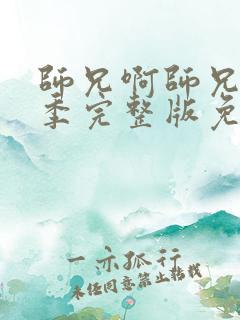 師兄啊師兄
季完整版免
一亦孤行
未经同意禁止转载